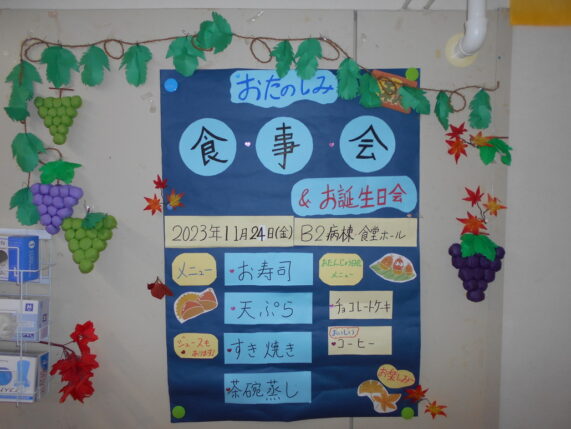 おたのしみ
食・事・会
& お誕生日会
2023年11月24日(金) B2病棟 食堂ホール
メニュー
・お寿司
・天ぷら
・すき焼き
・茶碗蒸し
ジュースも
あります!
おたんじょう日会
メニュー
・チョコレートケーキ
おいしい
・コーヒー
お楽しみに